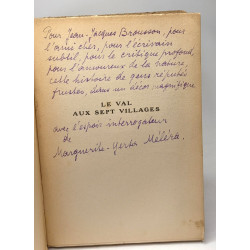 Pour Jean-Jacques Brousson, pour
l'ami cher, pour l'écrivain
subtil, pour le critique profond,
pour l'amoureux de la nature,
cette histoire de gens réputés
frustes, dans un décor magnifique
LE VAL
AUX SEPT VILLAGES
avec l'espoir interrogateur
de
Marguerite-Yerta Méléra